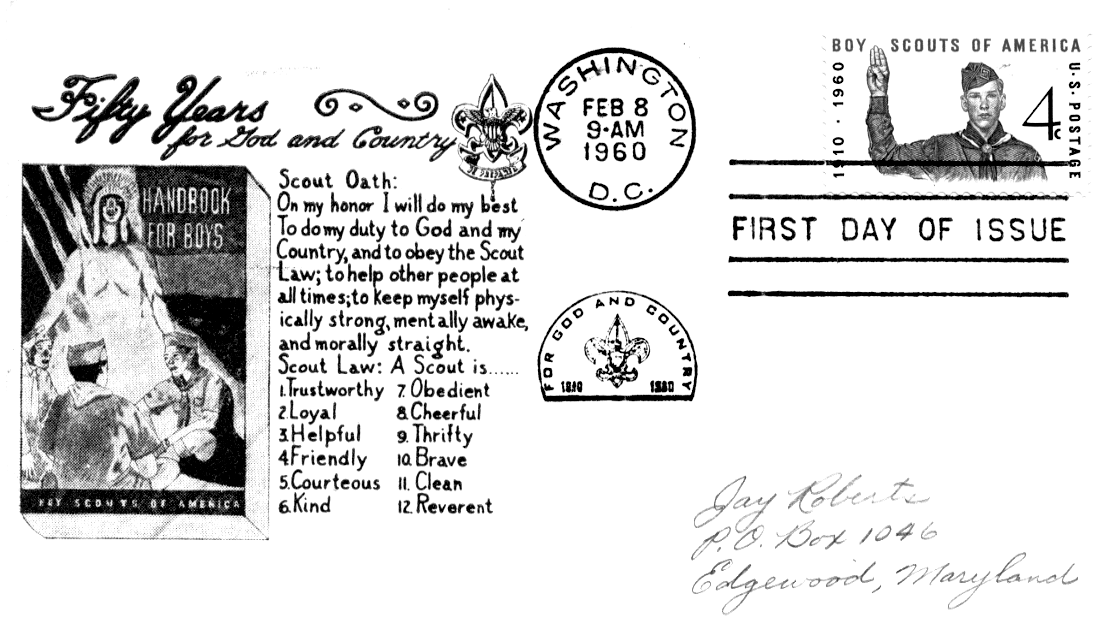 Fifty Years
for God and Country
BE PREPARED
HANDBOOK
FOR BOYS
BOY SCOUTS OF AMERICA
Scout Oath:
On my honor I will do my best
To do my duty to God and my
Country, and to obey the Scout
Law; to help other people at
all times; to keep myself phys-
ically strong, mentally awake,
and morally straight.
Scout Law: A Scout is......
1. Trustworthy 7. Obedient
2. Loyal 8. Cheerful
3. Helpful 9. Thrifty
4. Friendly 10. Brave
5. Courteous 11. Clean
6. Kind 12. Reverent
WASHINGTON
FEB 8
9-AM
1960
D.C.
FOR GOD AND COUNTRY
1910 1960
BOY SCOUTS OF AMERICA
1910 · 1960
4c
U·S·POSTAGE
FIRST DAY OF ISSUE
Jay Roberts
P.O. Box 1046
Edgewood, Maryland